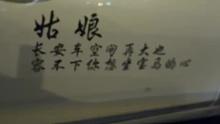 姑娘
长安车空间再大也
容不下你想坐宝马的心